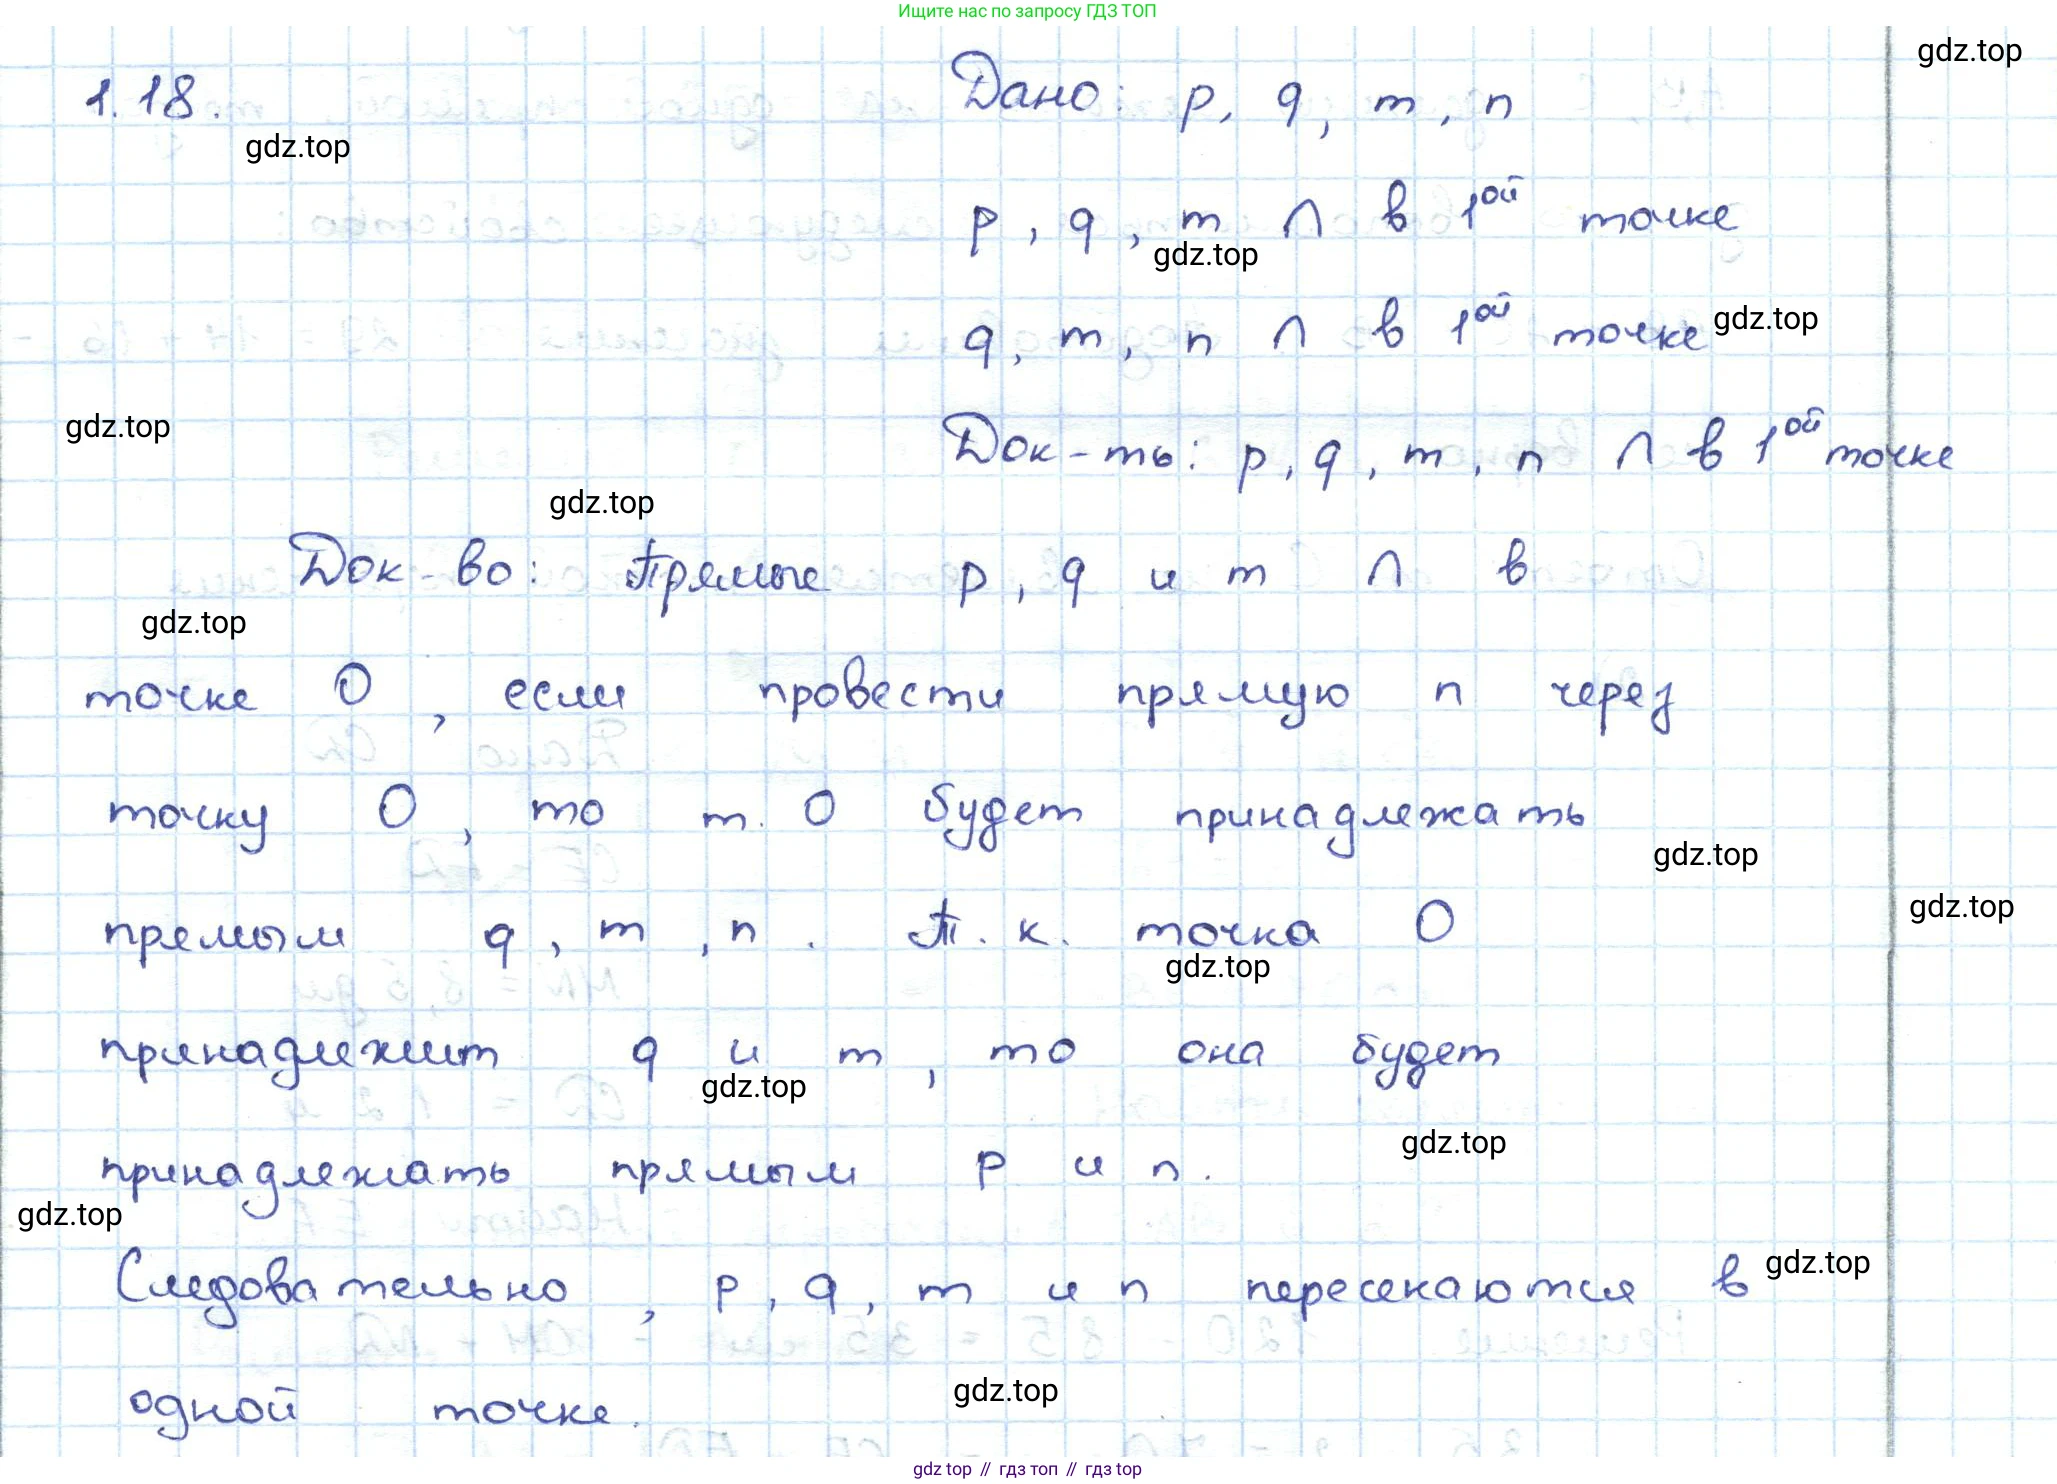 Ищите нас по запросу ГДЗ ТОП
gdz.top
1.18.
Дано: p, q, m, n
gdz.top
p, q, m ∩ в 1ой точке
gdz.top
q, m, n ∩ в 1ой точке
gdz.top
gdz.top
Док-ть: p, q, m, n ∩ в 1ой точке
gdz.top
Док-во: Прямые p, q и m ∩ в
gdz.top
точке O, если провести прямую n через
точку O, то т. O будет принадлежать
gdz.top
gdz.top
прямым q, m, n. Т.к. точка O
gdz.top
принадлежит q и m, то она будет
gdz.top
gdz.top
принадлежать прямым p и n.
gdz.top
Следовательно, p, q, m и n пересекаются в
gdz.top
gdz.top
одной точке.
gdz top // гдз топ // гдз top